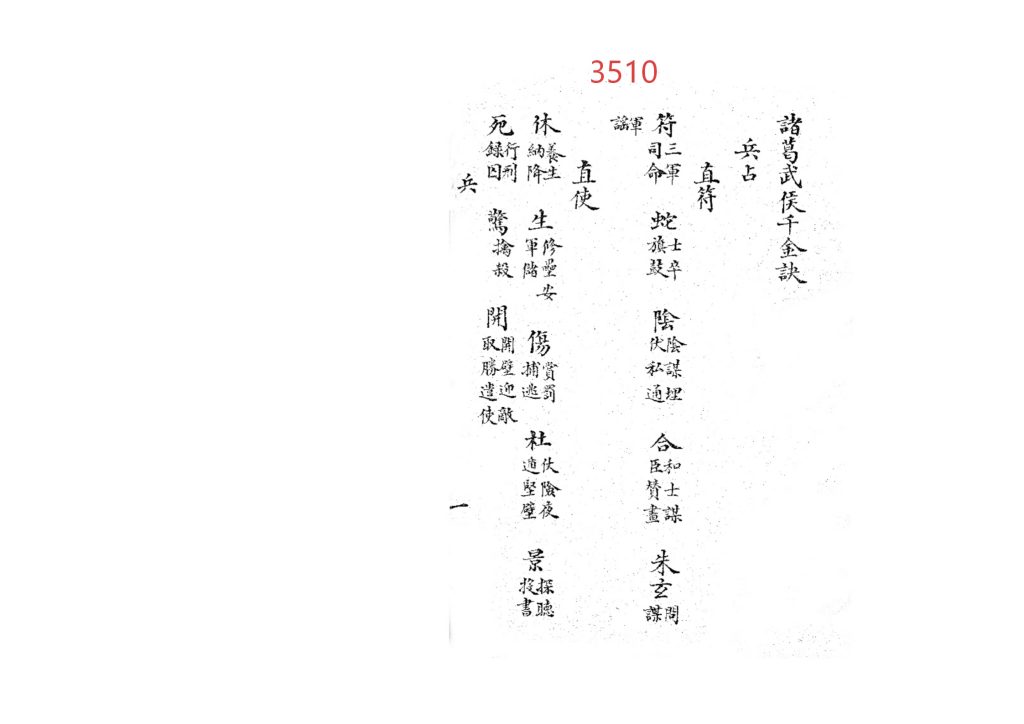 3510
諸葛武侯千金訣
兵占
直符
符 三軍司命 蛇 士卒旗鼓 陰 陰謀埋伏私通 合 和士謀臣贊畫 朱玄 間謀
軍謠
直使
休 養生納降 生 修壘安軍儲 傷 賞罰捕逃 杜 伏險夜遁堅壁 景 探聽投書
死 行刑錄囚 驚 擒殺 開 開壁迎敵取勝遣使
兵 一